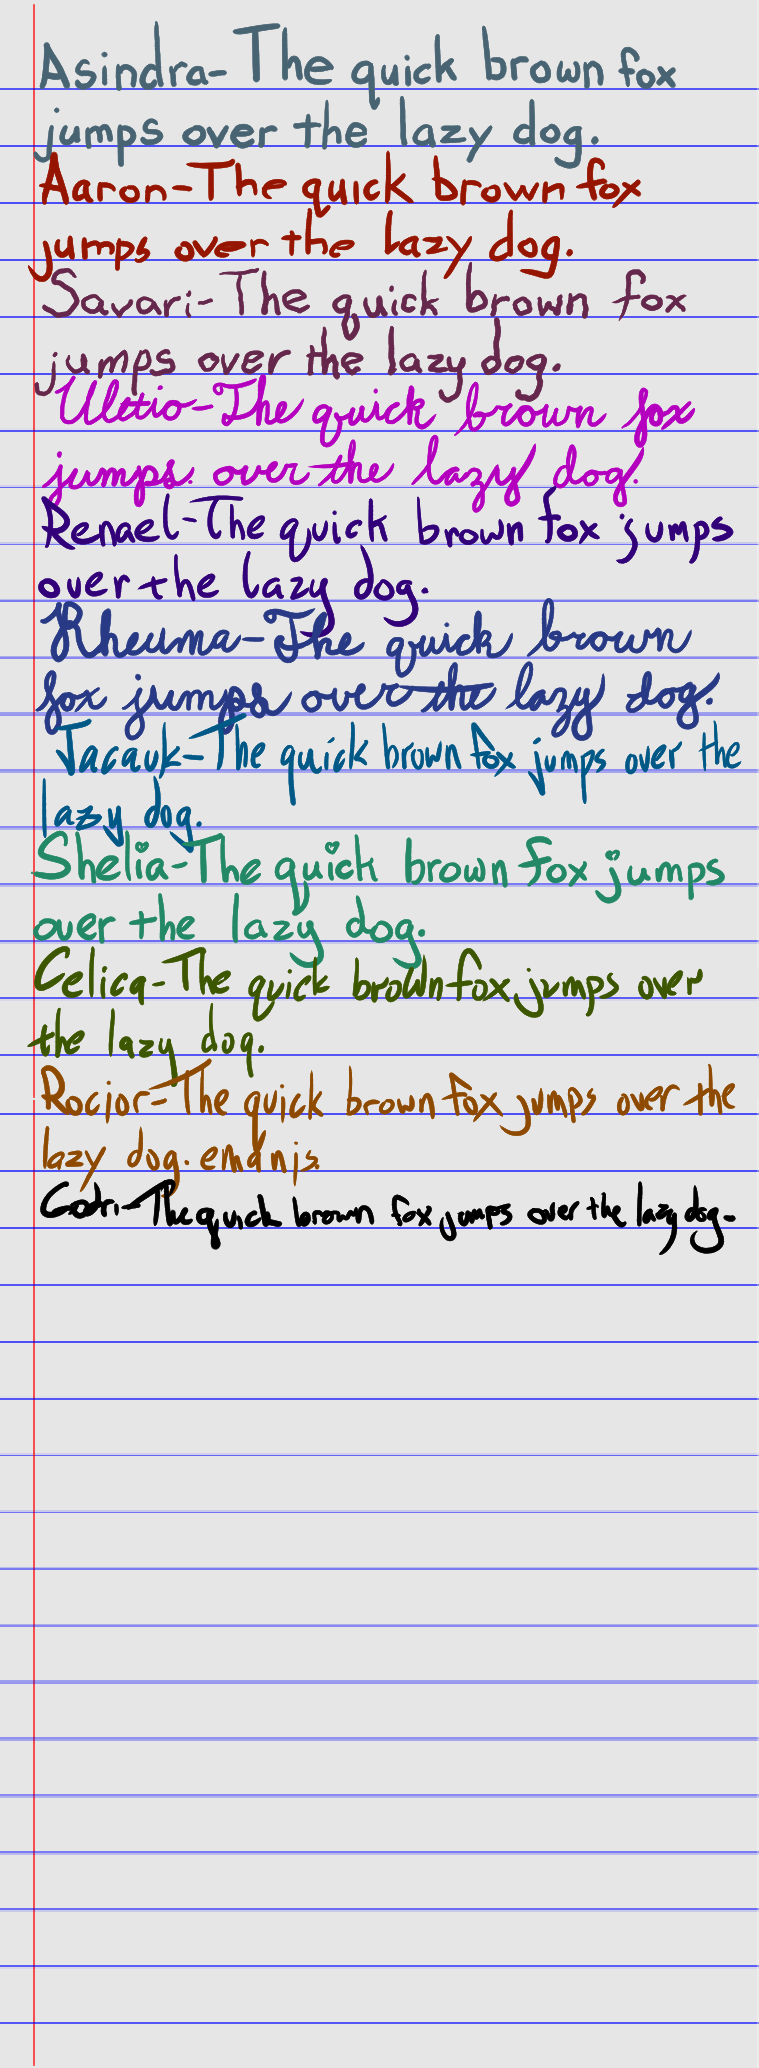 Asindra- The quick brown fox
jumps over the lazy dog.
Aaron-The quick brown fox
jumps over the lazy dog.
Savari-The quick brown fox
jumps over the lazy dog.
Uletio-The quick brown fox
jumps over the lazy dog.
Renael-The quick brown fox jumps
over the lazy dog.
Rheuma-The quick brown
fox jumps over the lazy dog.
Jacauk-The quick brown fox jumps over the
lazy dog.
Shelia-The quick brown fox jumps
over the lazy dog.
Celica-The quick brown fox jumps over
the lazy dog.
Rocior-The quick brown fox jumps over the
lazy dog.
-The quick brown fox jumps over the lazy dog.